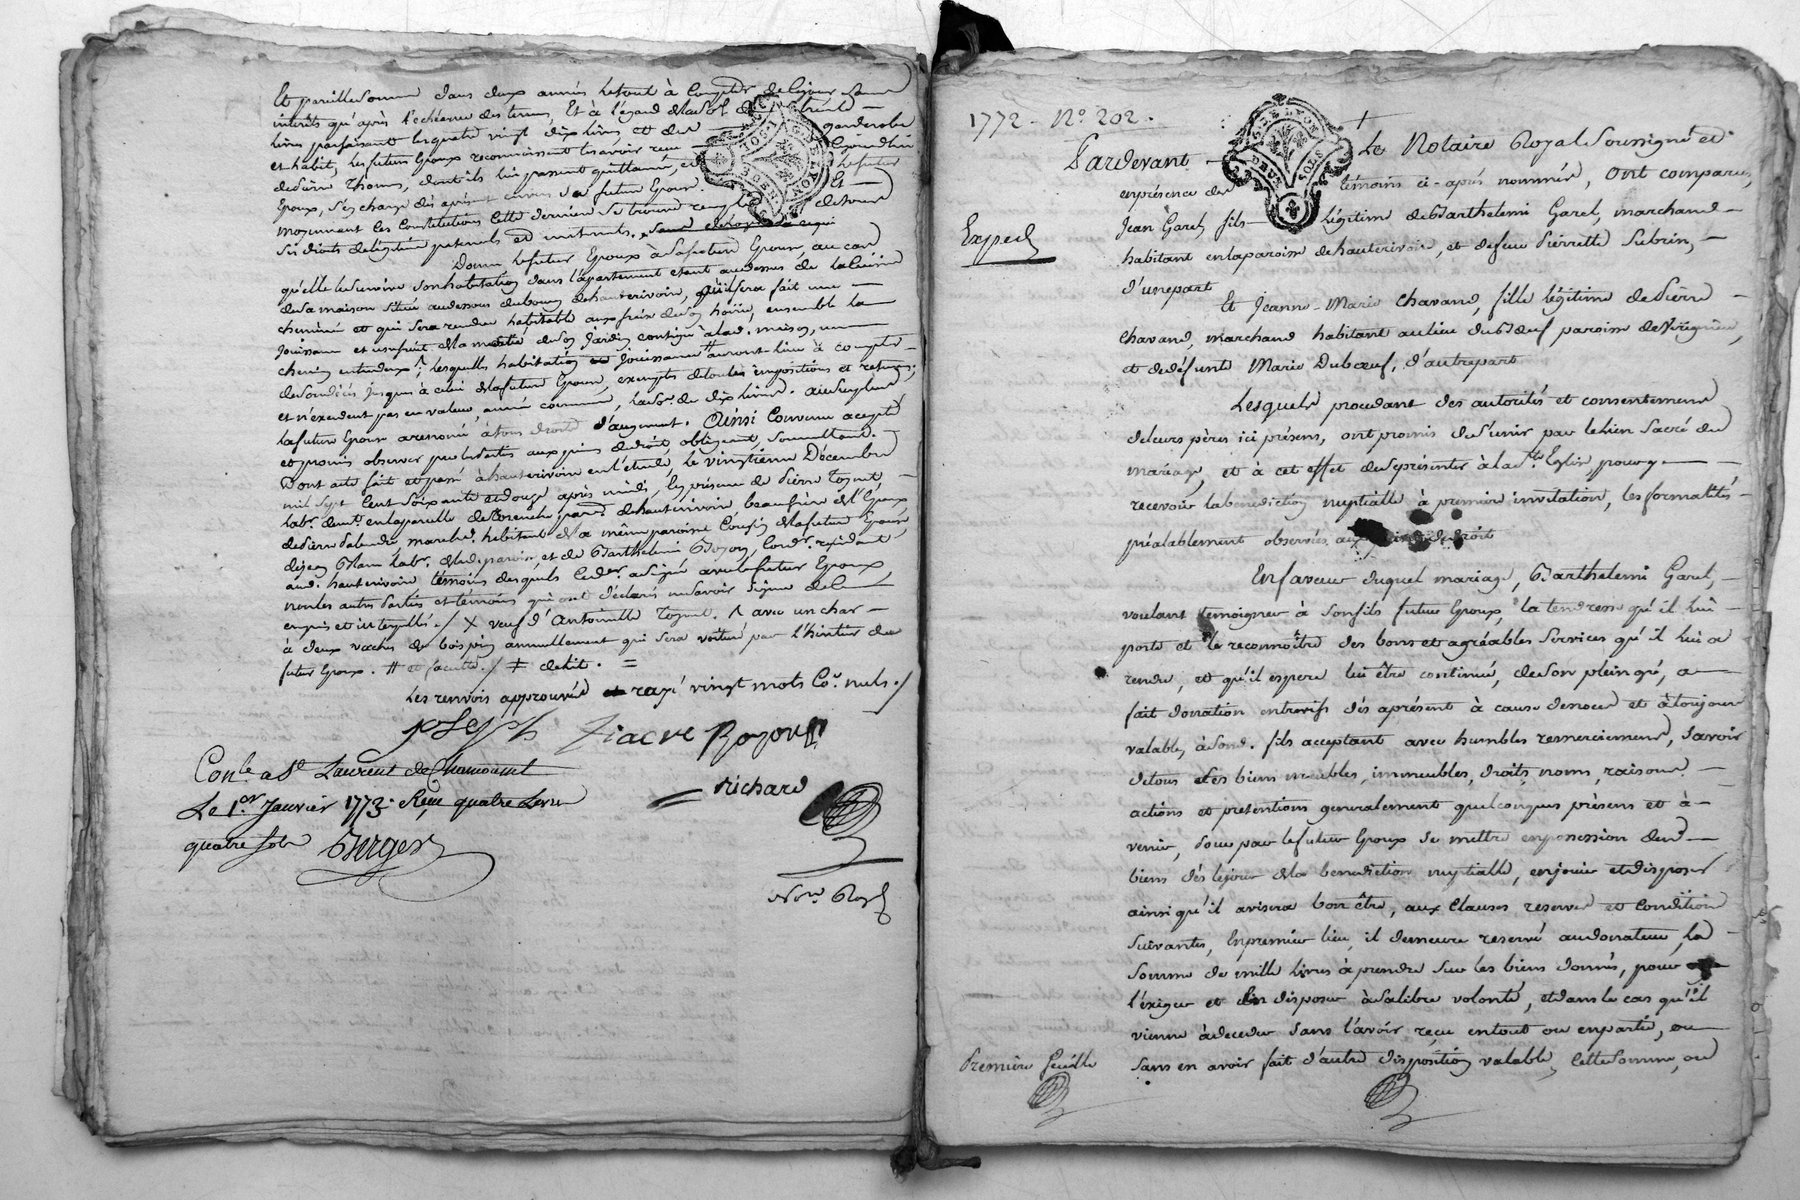 Et pareille somme dans deux années le tout à compter de ce jour sans
interêts qu'après l'echéance des termes, Et à l'égard de la so.e de trente
livres parfaisant lesquels vingt dix livres et des garderobe
et habits, les futurs Epoux reconnoissent les avoir reçu
de Pierre Thomas, dont ils lui passent quittance, et le futur
Epoux, s'en charge dès aprèsent envers sa future Epouse. Et
moyennant les Constitutions cette derniere se trouve remplie de tous
ses droits de légitime paternels et maternels.
Donne le futur Epoux à sa future Epouse, au cas
qu'elle lui survive son habitation dans l'apartement etant au dessus de la Cuisine
de sa maison située au dessous du bourg de hauterivoire, qui sera fait une
cheminée et qui sera rendue habitable aux fraix de son hoirie, ensemble la
jouissance et usufruit de la moitié de son jardin contigu à la d. maison, un
chemin entre deux; lesquelles habitation et jouissance auront lieu à compter
de son décès jusques à celui de la future Epouse, exemptes de toutes impositions et retenues,
et n'excedent pas en valeur, année commune, la so.e de dix livres. au surplus
la future Epouse a renoncé à tous droits d'augment. Ainsi Convenu accepté
et promis observer par les parties aux peines de droit, obligeant, soumettant.
Dont acte fait et passé à hauterivoire en l'étude, le vingtième Décembre
mil sept Cent soixante et douze après midi, En présence de Pierre
hauterivoire, beaufrère de l'Epoux
de Pierre marchd. habitant de la même paroisse Cousin de la future Epouse
de Jean lab.r de la de paroisse, et de Barthelemi Boyon, Cord.r résidant
aud. hauterivoire témoins desquels Ce der.r a signé avec le futur Epoux,
non les autres Parties et témoins qui ont déclaré ne savoir signer de ce
enquis et interpellés./ X veuf d'Antoinette . ^ avec un char
à deux vaches de bois pin annuellement qui sera voituré par l'héritier du
futur Epoux. # et faculté./ ‡ de hit. =
Les renvois approuvés et rayé vingt mots Co.e nuls./
Joseph fiacre Boyon
Con.lé a St Laurent de Chamousset
Le 1.er Janvier 1773. Reçu quatre Livres
quatre sols Berger
Richard
No.re Royal
1772. N.o 202.
G.DE LYON
DEUX SOLS
Pardevant Le Notaire Royal Soussigné et
en présence des témoins ci-après nommés, Ont comparus,
Exped
Jean Garel, fils Légitime de Barthelemi Garel, marchand
habitant en la paroisse de hauterivoire, et de feue Pierrette Subrin,
d'une part
Et Jeanne-Marie Chavand, fille légitime de Pierre
Chavand, marchand habitant au lieu du Bœuf paroisse de Virigneux,
et de défunte Marie Dubœuf, d'autre part
Lesquels procedant des autorités et consentemens
de leurs pères ici présens, ont promis de s'unir par le lien sacré du
mariage, et à cet effet de se présenter à la S.te Eglise, pour y
recevoir la benediction nuptialle à premiere invitation, les formalités
préalablement observées, aux peines de droit
En faveur duquel mariage, Barthelemi Garel,
voulant temoigner à son fils futur Epoux, la tendresse qu'il lui
porte et le reconnoître des bons et agréables services qu'il lui a
rendu, et qu'il espere lui être continué, de son plein gré, a
fait donation entrevifs dès aprésent à cause de noces et à toujours
valable, à sond. fils acceptant avec humbles remerciemens, savoir
de tous et ses biens meubles, immeubles, droits, noms, raisons,
actions et prétentions generalement quelconques présens et à
venir, pour par le futur Epoux se mettre en possession desd.
biens dès le jour de la benediction nuptialle, en jouir et disposer
ainsi qu'il avisera bon être, aux Clauses reserves et conditions
suivantes, En premier lieu, il demeure reservé au donateur, la
somme de mille livres à prendre sur les biens donnés, pour
l'éxiger et en disposer à sa libre volonté, et dans le cas qu'il
vienne à deceder sans l'avoir reçu en tout ou en partie, ou
Premiere feuille
sans en avoir fait d'autre disposition valable, cette somme, ou